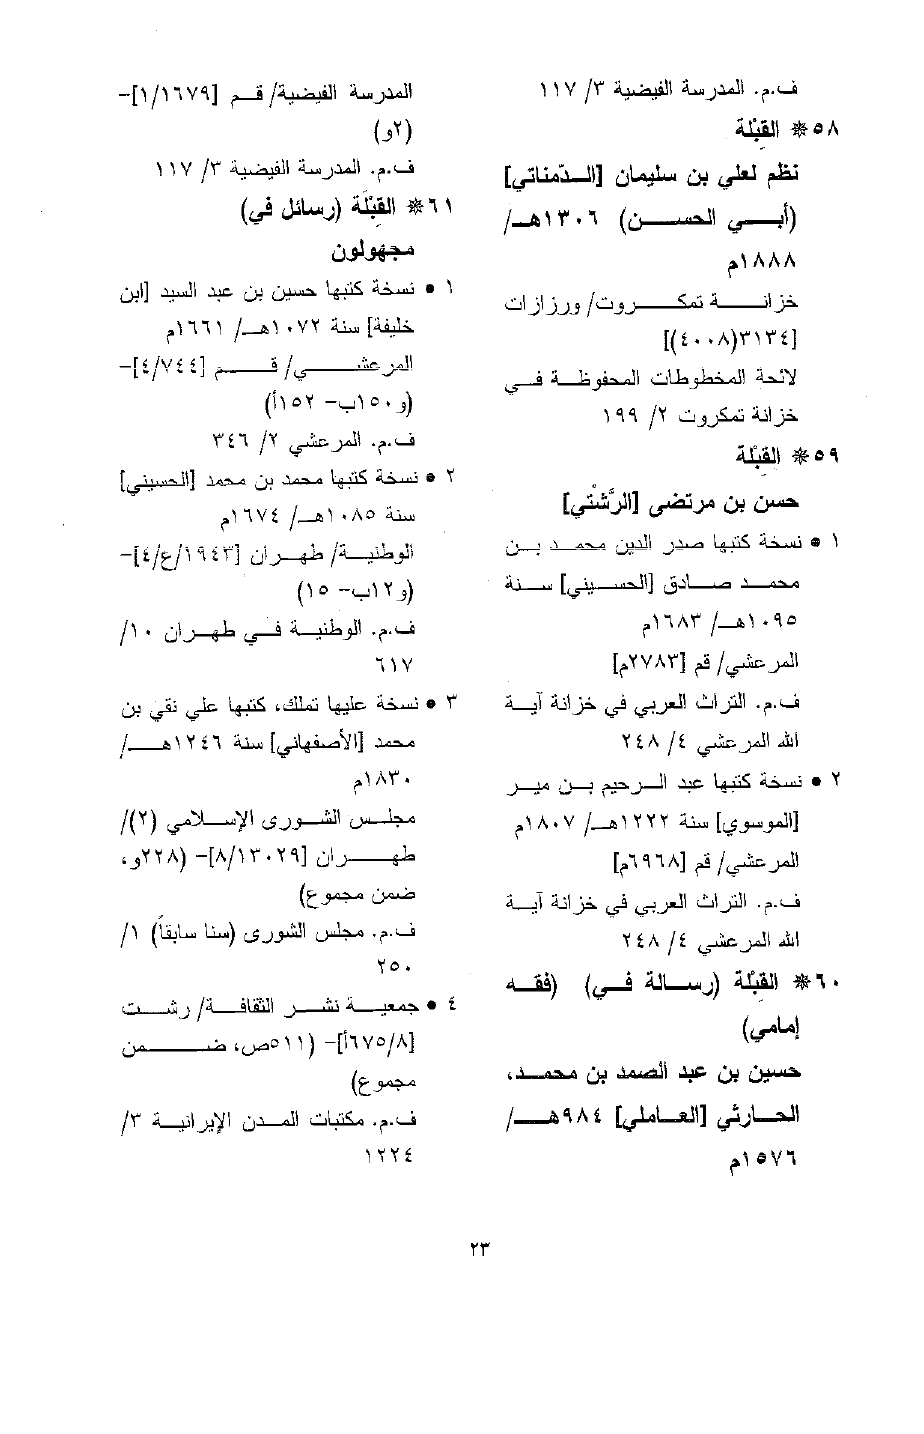 ف.م. المدرسة الفيضية ٣/ ١١٧
٥٨* القِبْلة
نظم لعلي بن سليمان [الدّمناتي]
(أبي الحسن) ١٣٠٦هـ/
١٨٨٨م
خزانة تمكروت/ ورزازات
[٣١٣٤(٤٠٠٨)]
لائحة المخطوطات المحفوظة في
خزانة تمكروت ٢/ ١٩٩
٥٩* القِبْلة
حسن بن مرتضى [الرَّشْتي]
١ • نسخة كتبها صدر الدين محمد بن
محمد صادق [الحسيني] سنة
١٠٩٥هـ/ ١٦٨٣م
المرعشي/ قم [٢٧٨٣م]
ف.م. التراث العربي في خزانة آية
الله المرعشي ٤/ ٢٤٨
٢ • نسخة كتبها عبد الرحيم بن مير
[الموسوي] سنة ١٢٢٢هـ/ ١٨٠٧م
المرعشي/ قم [٦٩٦٨م]
ف.م. التراث العربي في خزانة آية
الله المرعشي ٤/ ٢٤٨
٦٠* القِبْلة (رسالة في) (فقه
إمامي)
حسين بن عبد الصمد بن محمد،
الحارثي [العاملي] ٩٨٤هـ/
١٥٧٦م
المدرسة الفيضية/ قم [١/١٦٧٩]-
(٢و)
ف.م. المدرسة الفيضية ٣/ ١١٧
٦١* القِبْلَة (رسائل في)
مجهولون
١ • نسخة كتبها حسين بن عبد السيد [ابن
خليفة] سنة ١٠٧٢هـ/ ١٦٦١م
المرعشي/ قم [٤/٧٤٤]-
(و١٥٠ب- ١٥٢أ)
ف.م. المرعشي ٢/ ٣٤٦
٢ • نسخة كتبها محمد بن محمد [الحسيني]
سنة ١٠٨٥هـ/ ١٦٧٤م
الوطنية/ طهران [١٩٤٣/ع/٤]-
(و١٢ب- ١٥)
ف.م. الوطنية في طهران ١٠/
٦١٧
٣ • نسخة عليها تملك، كتبها علي نقي بن
محمد [الأصفهاني] سنة ١٢٤٦هـ/
١٨٣٠م
مجلس الشورى الإسلامي (٢)/
طهران [٨/١٣٠٢٩]- (٢٢٨و،
ضمن مجموع)
ف.م. مجلس الشورى (سنا سابقاً) ١/
٢٥٠
٤ • جمعية نشر الثقافة/ رشت
[٦٧٥/٨أ]- (٥١١ص، ضمن
مجموع)
ف.م. مكتبات المدن الإيرانية ٣/
١٢٢٤
٢٣